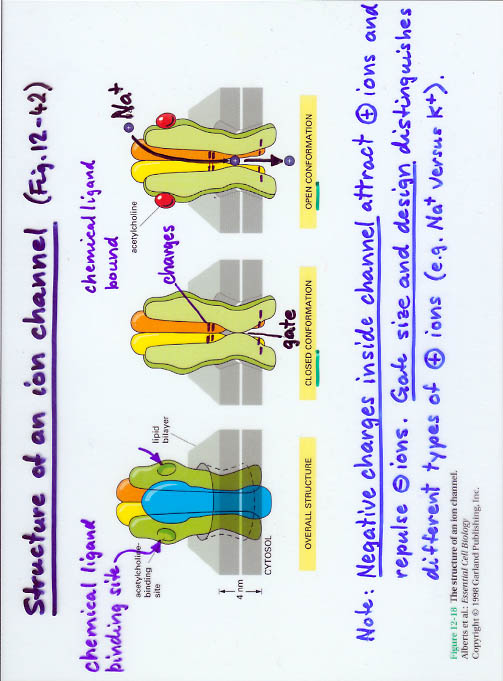 Structure of an ion channel (Fig. 12-42)
chemical ligand
binding site
acetylcholine-
binding
site
lipid
bilayer
4 nm
CYTOSOL
OVERALL STRUCTURE
charges
gate
CLOSED CONFORMATION
chemical ligand
bound
acetylcholine
Na+
OPEN CONFORMATION
Note: Negative charges inside channel attract ⊕ ions and
repulse ⊖ ions. Gate size and design distinguishes
different types of ⊕ ions (e.g. Na+ versus K+).
Figure 12-18 The structure of an ion channel.
Alberts et al.: Essential Cell Biology
Copyright © 1998 Garland Publishing, Inc.